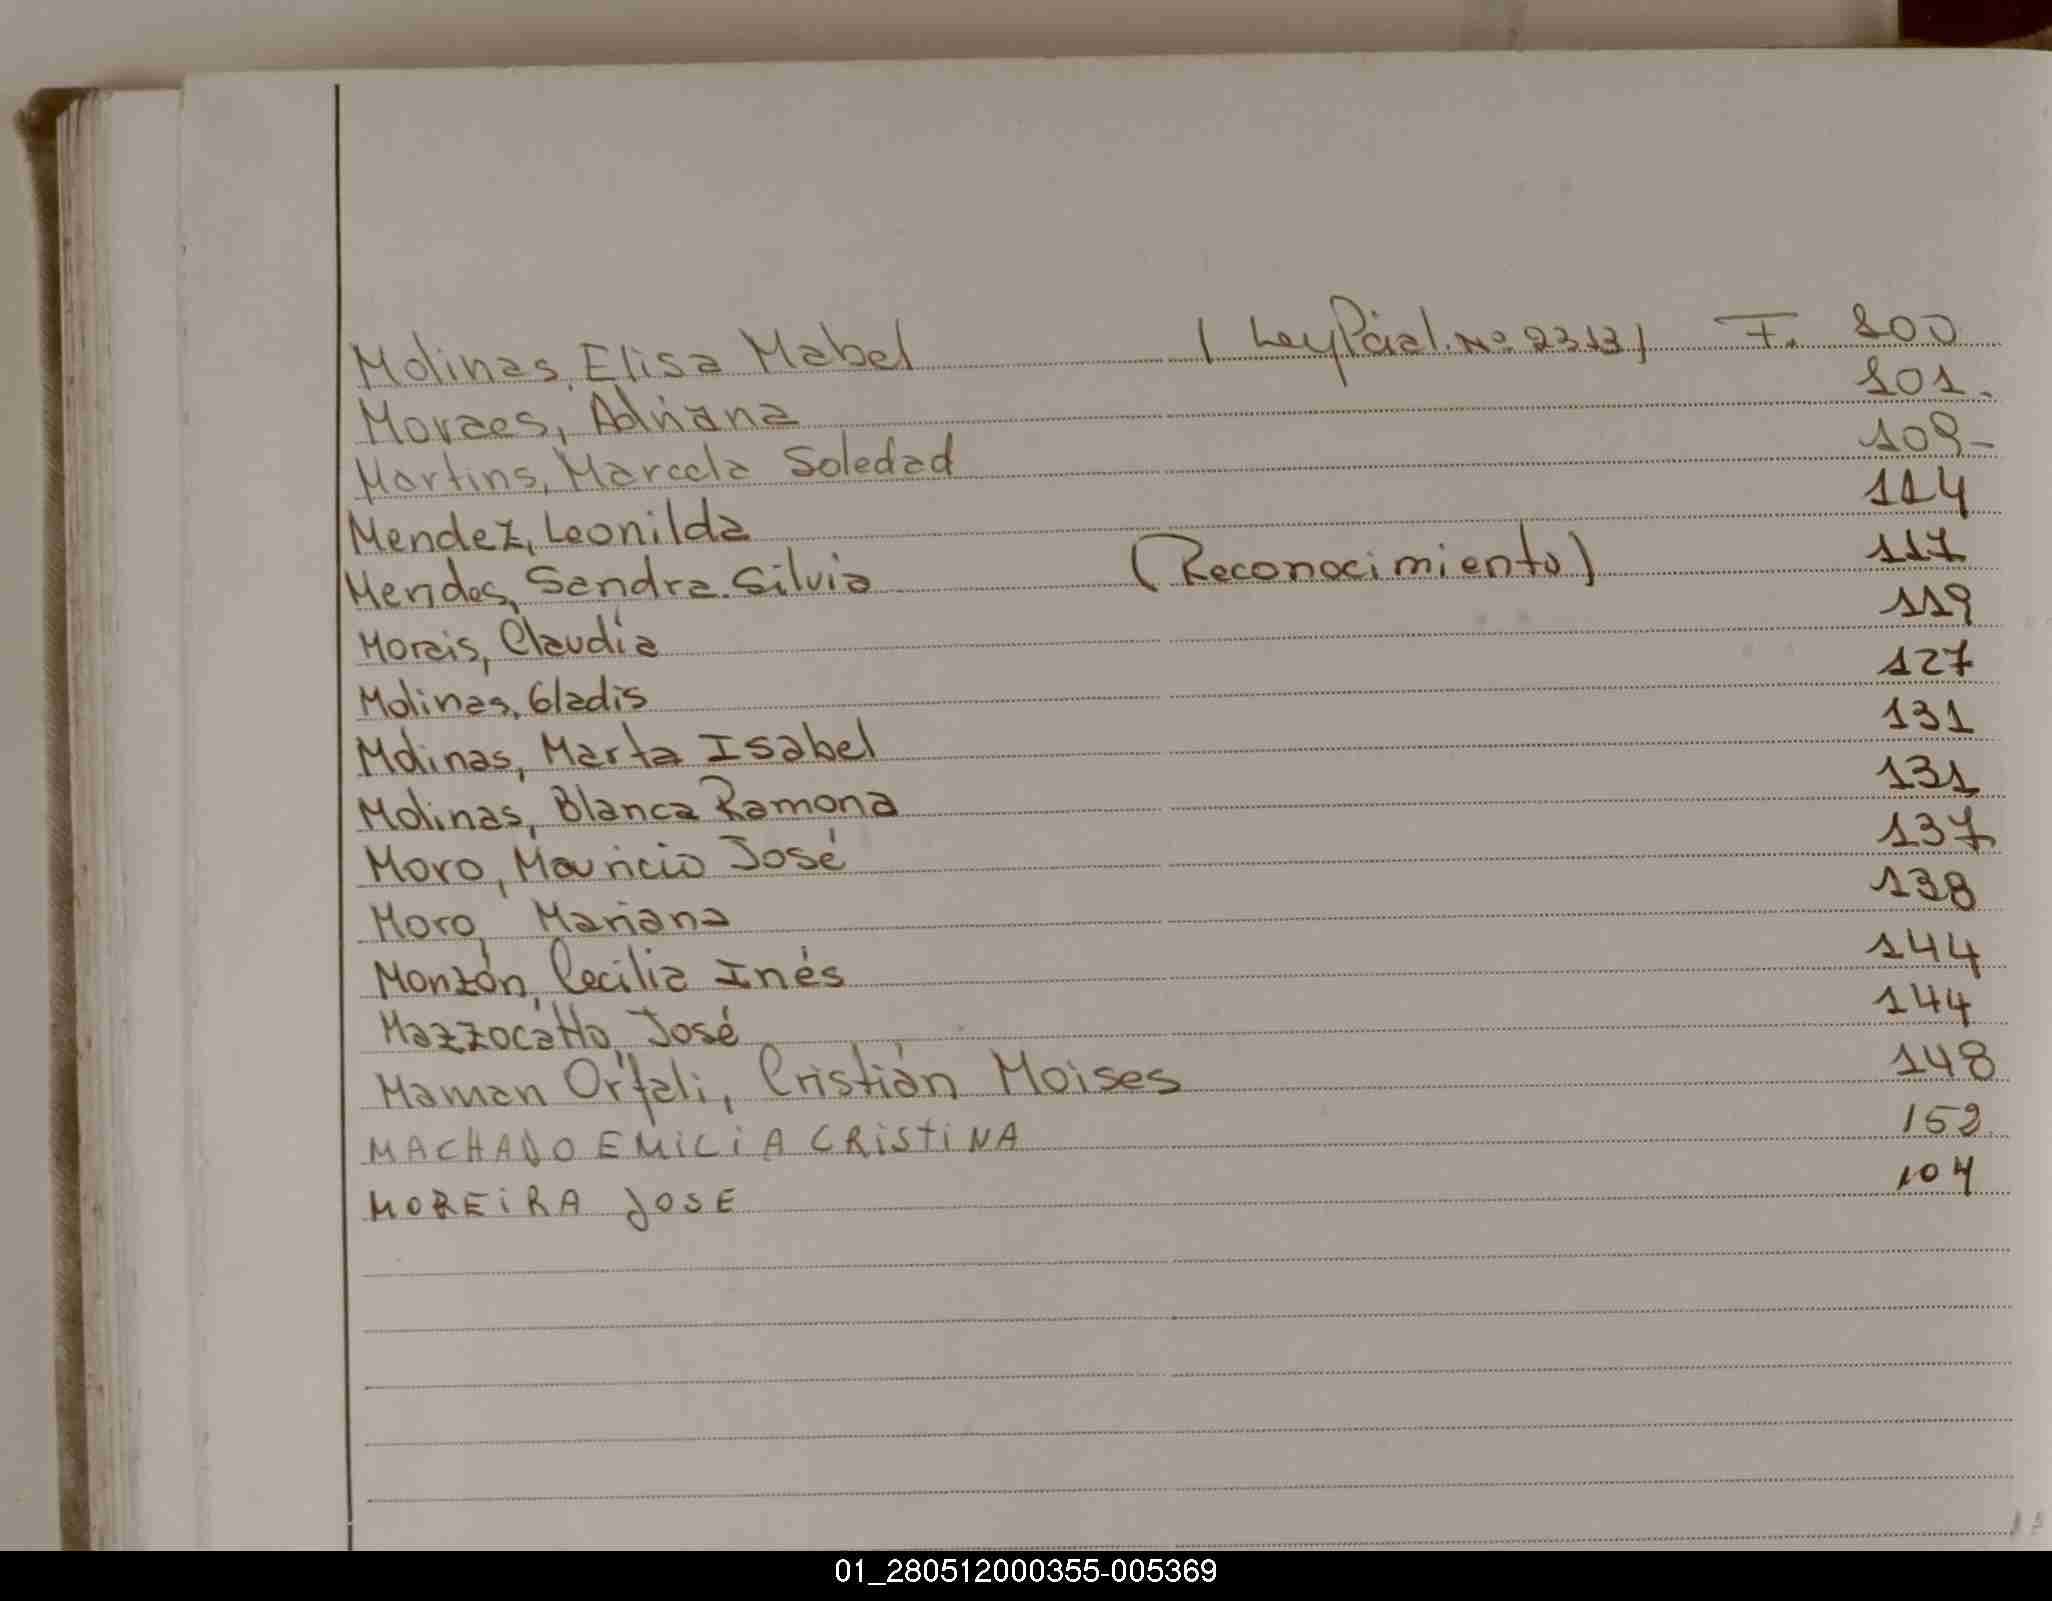 Molinas, Elisa Mabel (Ley Pcial. Nº 2313) F. 100
Moraes, Adriana 101.
Martins, Marcela Soledad 109-
Mendez, Leonilda 114
Mendes, Sandra Silvia (Reconocimiento) 117
Morais, Claudia 119
Molinas, Gladis 127
Molinas, Marta Isabel 131
Molinas, Blanca Ramona 131
Moro, Mauricio José 137
Moro, Mariana 138
Monzón, Cecilia Inés 144
Mazzocatto, José 144
Maman Orfali, Cristián Moises 148
MACHADO EMiLiA CRiStiNA 152
MOREiRA JOSE 104
01_280512000355-005369